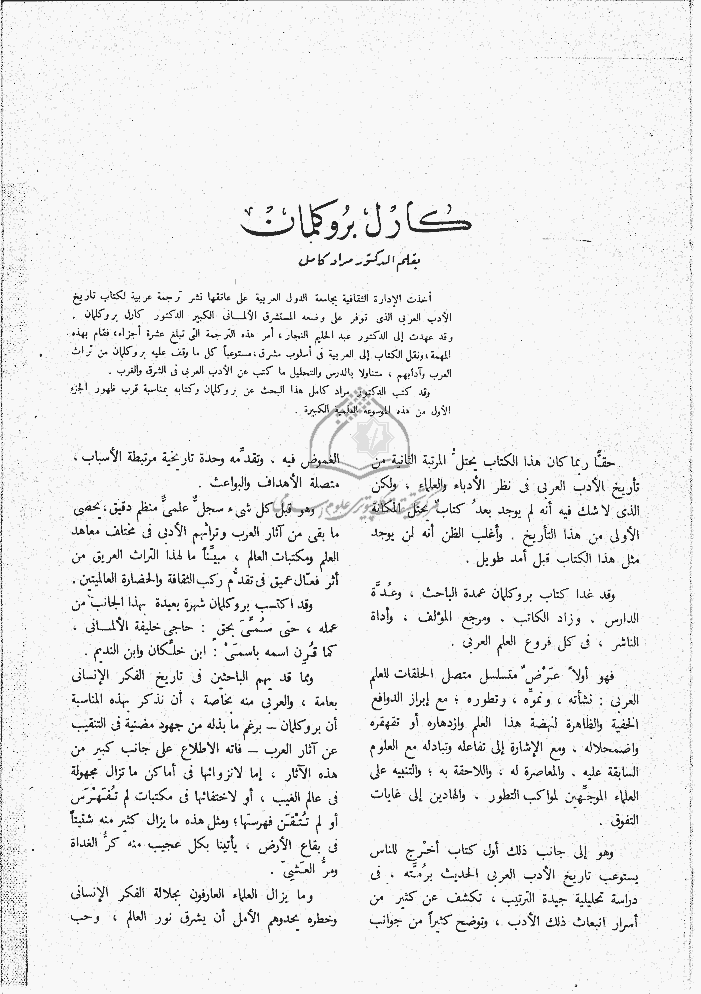 كارل بروكلمان
بقلم الدكتور مراد كامل
أخذت الإدارة الثقافية بجامعة الدول العربية على عاتقها نشر ترجمة عربية لكتاب تاريخ
الأدب العربى الذى توفر على وضعه المستشرق الألمانى الكبير الدكتور كارل بروكلمان .
وقد عهدت إلى الدكتور عبد الحليم النجار، أمر هذه الترجمة التى تبلغ عشرة أجزاء، فقام بهذه
المهمة، ونقل الكتاب إلى العربية فى أسلوب مشرق، مستوعباً كل ما وقف عليه بروكلمان من تراث
العرب وآدابهم ، متناولا بالدرس والتحليل ما كتب عن الأدب العربى فى الشرق والغرب .
وقد كتب الدكتور مراد كامل هذا البحث عن بروكلمان وكتابه بمناسبة قرب ظهور الجزء
الأول من هذه الموسوعة العلمية الكبيرة .
حقًّا ربما كان هذا الكتاب يحتلُّ المرتبة الثانية من
تأريخ الأدب العربى فى نظر الأدباء والعلماء ، ولكن
الذى لا شك فيه أنه لم يوجد بعدُ كتابٌ يحتل المكانة
الأولى من هذا التأريخ . وأغلب الظن أنه لن يوجد
مثل هذا الكتاب قبل أمد طويل .
وقد غدا كتاب بروكلمان عمدة الباحث ، وعُدَّة
الدارس . وزاد الكاتب . ومرجع المؤلف ، وأداة
الناشر ، فى كل فروع العلم العربى .
فهو أولاً عَرْضٌ متسلسل متصل الحلقات للعلم
العربى : نشأته ، ونموِّه ، وتطوره ؛ مع إبراز الدوافع
الخفية والظاهرة لنهضة هذا العلم وازدهاره أو تقهقره
واضمحلاله . ومع الإشارة إلى تفاعله وتبادله مع العلوم
السابقة عليه . والمعاصرة له ، واللاحقة به ؛ والتنبيه على
العلماء الموجِّهين لمواكب التطور . والهادين إلى غايات
التفوق .
وهو إلى جانب ذلك أول كتاب أخرج للناس
يستوعب تاريخ الأدب العربى الحديث برُمَّته . فى
دراسة تحليلية جيدة الترتيب ، تكشف عن كثير من
أسرار انبعاث ذلك الأدب ، وتوضح كثيراً من جوانب
الغموض فيه . وتقدِّمه وحدة تاريخية مرتبطة الأسباب ،
متصلة الأهداف والبواعث .
وهو قبل كل شىء سجلٌّ علمىٌّ منظم دقيق، يحصى
ما بقى من آثار العرب وتراثهم الأدبى فى مختلف معاهد
العلم ومكتبات العالم ، مبيِّناً ما لهذا التراث العريق من
أثر فعّال عميق فى تقدُّم ركب الثقافة والحضارة العالميتين .
وقد اكتسب بروكلمان شهرة بعيدة بهذا الجانب من
عمله ، حتى سُمِّىَ بحق : حاجى خليفة الألمانى ،
كما قُرن اسمه باسمَىْ : ابن خلِّكان وابن النديم .
ومما قد يهم الباحثين فى تاريخ الفكر الإنسانى
بعامة ، والعربى منه بخاصة ، أن نذكر بهذه المناسبة
أن بروكلمان – برغم ما بذله من جهود مضنية فى التنقيب
عن آثار العرب – فاته الاطلاع على جانب كبير من
هذه الآثار ، إما لانزوائها فى أماكن ما تزال مجهولة
فى عالم الغيب ، أو لاختفائها فى مكتبات لم تُفَهْرَس
أو لم تُتْقَن فهرستها؛ ومثل هذه ما يزال كثير منه شتيتاً
فى بقاع الأرض ، يأتينا بكل عجيب منه كرُّ الغداة
ومرُّ العَشِىّ .
وما يزال العلماء العارفون بجلالة الفكر الإنسانى
وخطره يحدوهم الأمل أن يشرق نور العالم ، وحب